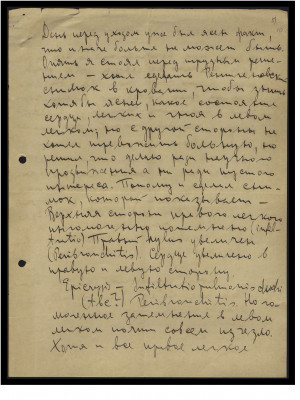 День перед уходом уже был ясен факт,
что иначе больше не может быть.
Опять я стоял перед трудным реше-
нием – хотел сделать Рентгеновский
снимок в кровати, чтобы знать
хотя бы яснее, какое состояние
сердца, легких и гноя в левом
легком; но с другой стороны не
хотел тревожить больную, но
решил, что делаю ради научного
продвижения а не ради пустого
интереса. Потому и сделал сни-
мок, который показывает –
Верхняя сторона правого легкого
затемнено (infil-
tratio) Правый увеличен
(Peribronchitis). Сердце увеличено в
правую и левую сторону.
Epicrysis – Infiltratio pulmonis dextri
(Abc?) Peribronchitis. Но га-
затемнение в левом
легком почти совсем изчезло.
Хотя и все правое легкое